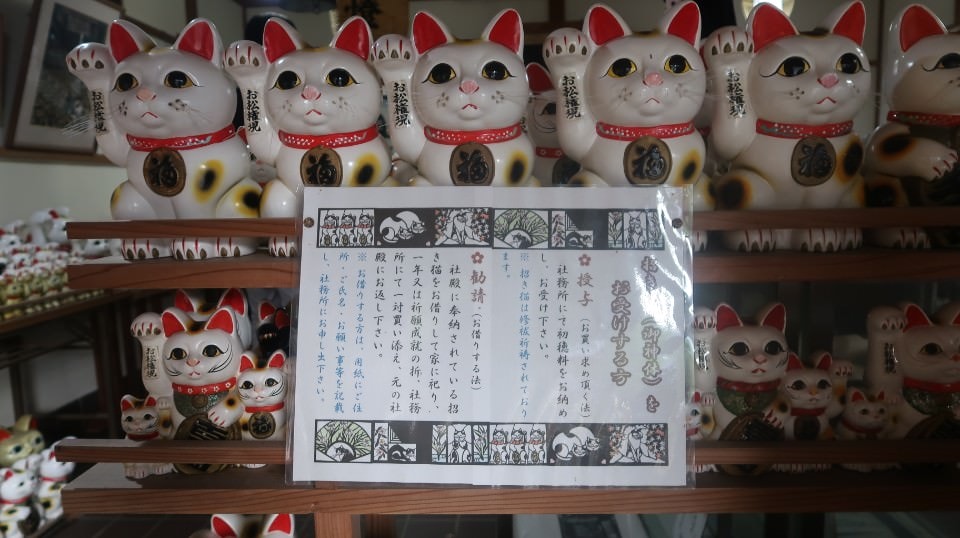 お松権現
お松権現
お松権現
お松権現
お松権現
福
福
福
福
福
を
お受けする方
授与(お買い求め頂く法)
社務所にて初穂料をお納め
し、お受け下さい。
※招き猫は修祓祈祷されており
ます。
勧請(お借りする法)
社殿に奉納されている招
き猫をお借りして家に祀り、
一年又は祈願成就の折、社務
所にて一対買い添え、元の社
殿にお返し下さい。
※お借りする方は、用紙にご住
所・ご氏名・お願い事等を記載
し、社務所にお申し出下さい。
お松権現